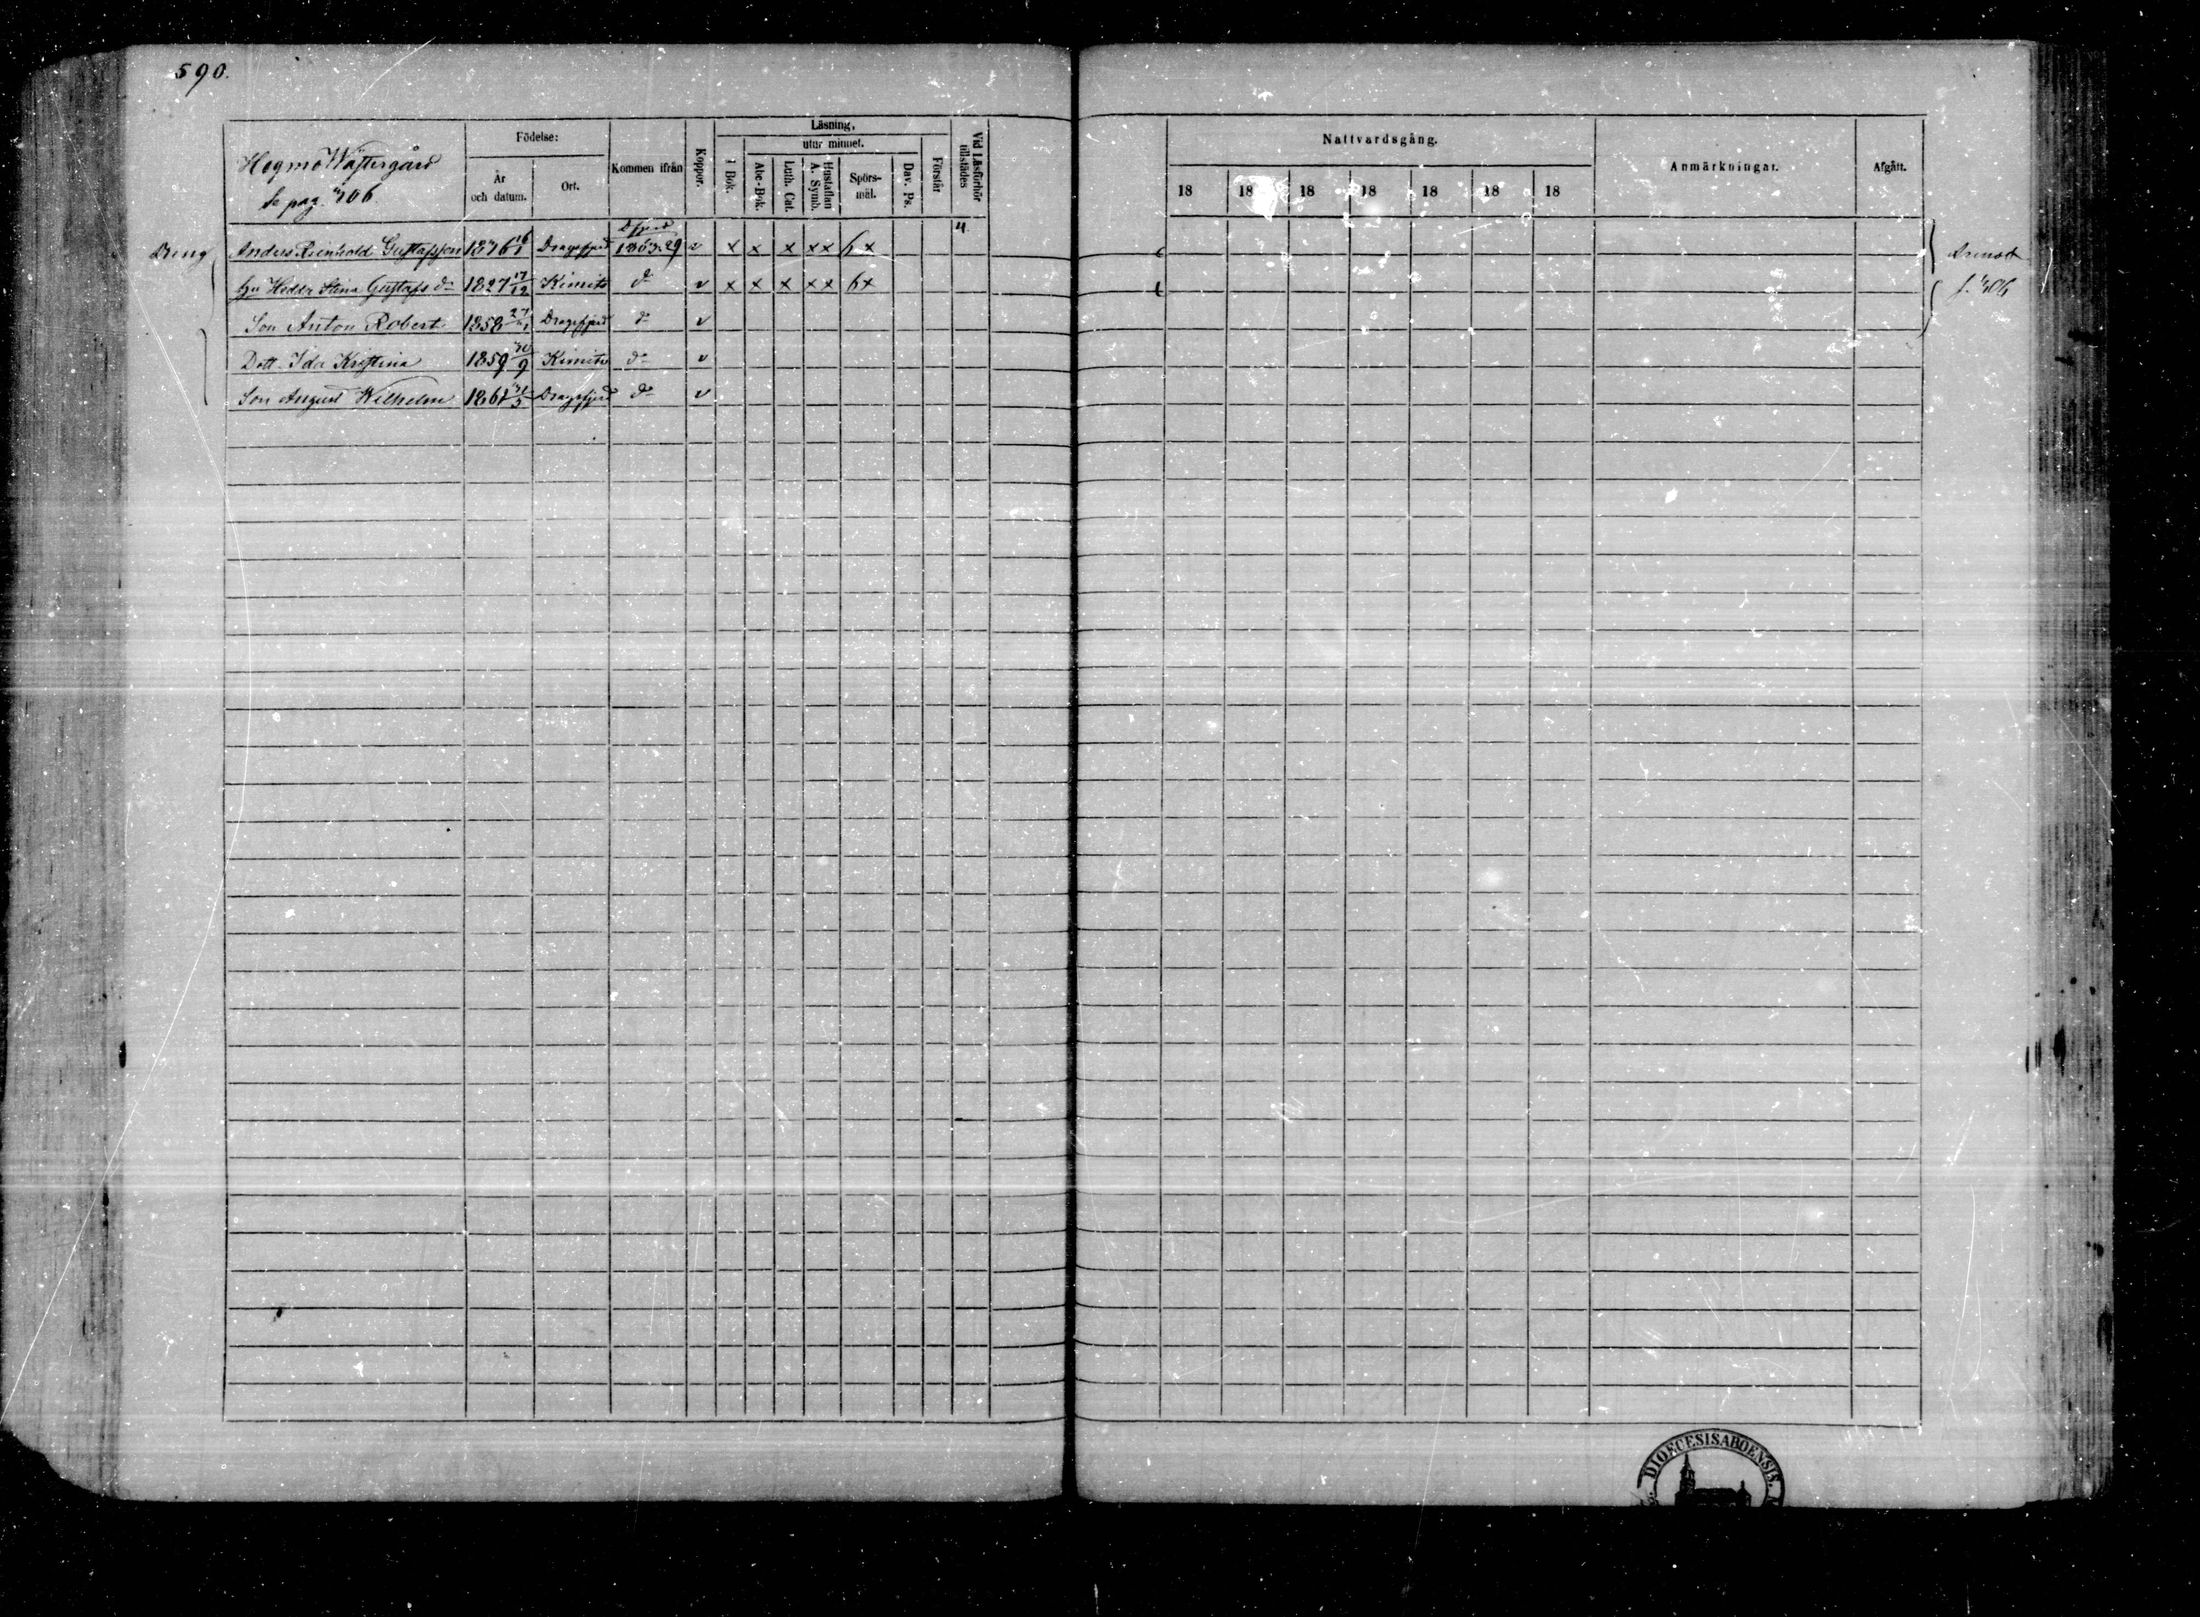 590.
Högmo Wästergård
se pag. 406
Födelse:
År och datum.
Ort.
Kommen ifrån
Koppor.
Läsning,
utur minnet.
i Bok.
Abc-Bok.
Luth. Cat.
Hustaflan A. Symb.
Spörsmål.
Dav. Ps.
Förstår
Vid Läsförhör tillstädes
Nattvardsgång.
18 18 18 18 18 18 18
Anmärkningar.
Afgått.
Dfjerd
Dreng Anders Reinhold Gustafsson 16/1 Dragsfjerd 1863.29 v x x x x x 6 x
Hu Hedda Stina Gustafs dr 1827 17/12 Kimito do v x x x x x 6 x
Son Anton Robert 1858 Dragsfjerd do v
Dott. Ida Kristina 1859 30/9 Kimito do v
Son August Wilhelm 1861 Dragsfjerd do v
f. 406
DIOECESIS ABOENSIS.